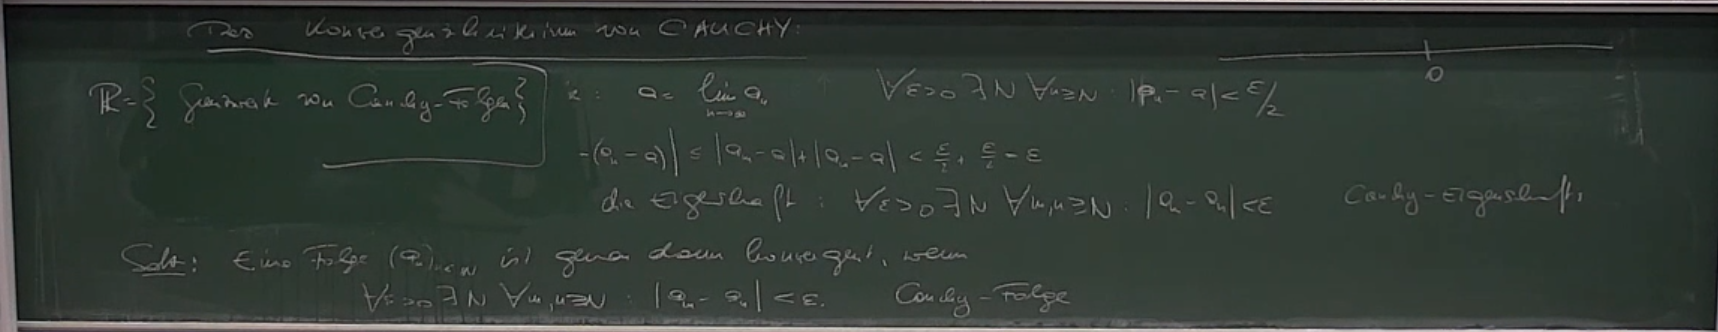 Das Konvergenzkriterium von CAUCHY:
ℝ = { Grenzwerte von Cauchy-Folgen }
: a = lim aₙ
n→∞
∀ε>0 ∃N ∀n≥N : |aₙ - a| < ε/2
0
-(aₙ - a)| ≤ |aₘ - a| + |aₙ - a| < ε/2 + ε/2 = ε
die Eigenschaft : ∀ε>0 ∃N ∀m,n≥N : |aₘ - aₙ| < ε Cauchy-Eigenschaft.
Satz: Eine Folge (aₙ)ₙ∈ℕ ist genau dann konvergent, wenn
∀ε>0 ∃N ∀m,n≥N : |aₘ - aₙ| < ε. Cauchy-Folge